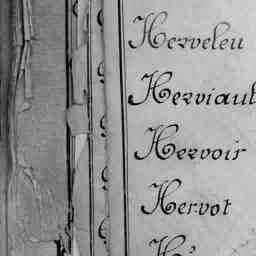 Herveleu
Herviault
Hervoir
Hervot